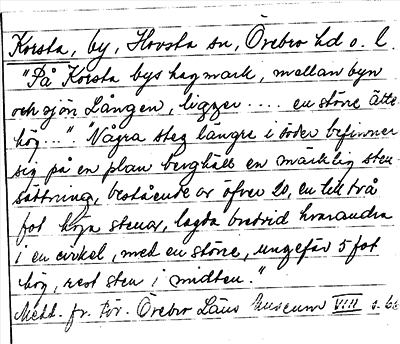 Korsta, by, Hovsta sn, Örebro hd o. l.
"På Korsta bys hagmark, mellan byn
och sjön Lången, ligger .... en större ätte-
hög..." "Några steg längre i söder befinner
sig på en plan berghäll en märklig sten-
sättning, bestående av öfver 20, en till två
fot höga stenar, lagda bredvid hvarandra
i en cirkel, med en större, ungefär 5 fot
hög, rest sten i midten."
Medd. fr. För. Örebro Läns Museum VIII s. 66